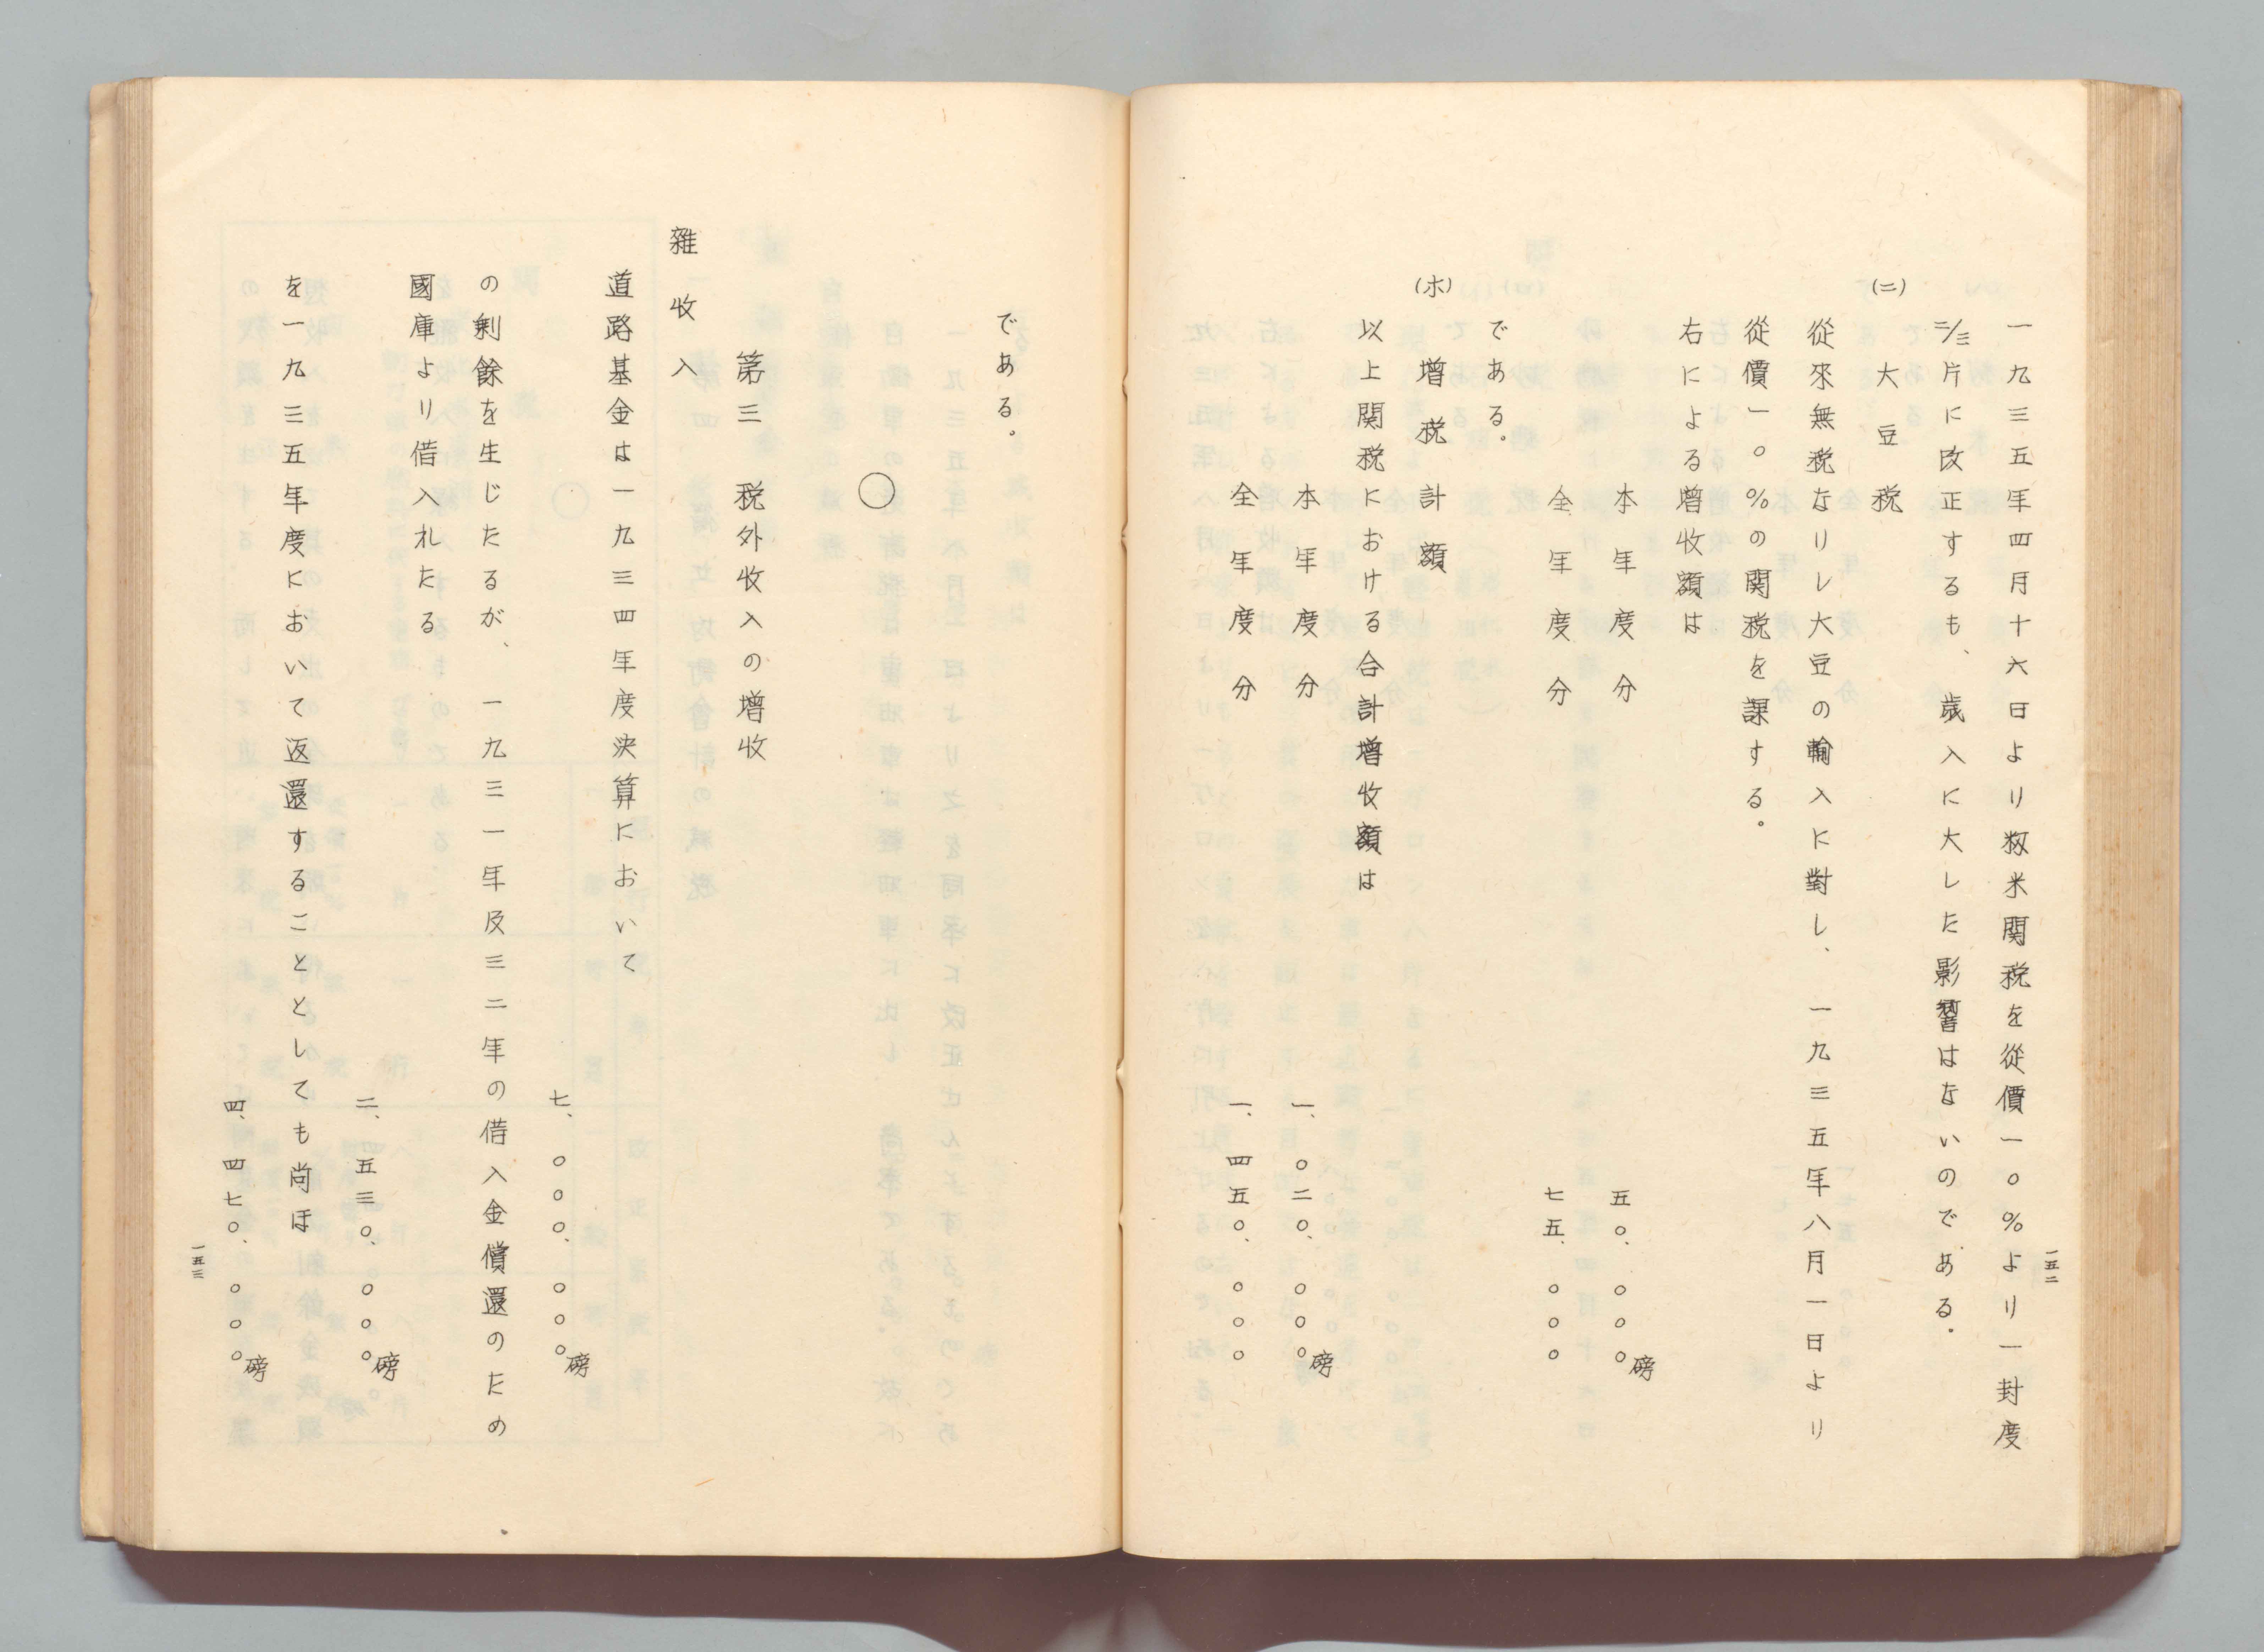 一五二
一九三五年四月十六日より籾米関税を從價一〇%より一封度
二/三片に改正するも、歳入に大した影響はないのである。
(ニ) 大豆税
從來無税なりし大豆の輸入に對し、一九三五年八月一日より
從價一〇%の関税を課する。
右による増收額は
本年度分 五〇、〇〇〇磅
全年度分 七五、〇〇〇
である。
(ホ) 増税計額
以上関税における合計増收額は
本年度分 一、〇二〇、〇〇〇磅
全年度分 一、四五〇、〇〇〇
である。
〇
第三 税外收入の増收
雜收入
道路基金は一九三四年度決算において
七、〇〇〇、〇〇〇磅
の剰餘を生じたるが、一九三一年及三二年の借入金償還のため
國庫より借入れたる
二、四五三〇、〇〇〇磅
を一九三五年度において返還することとしても尚ほ
四、四七〇、〇〇〇磅
一五三